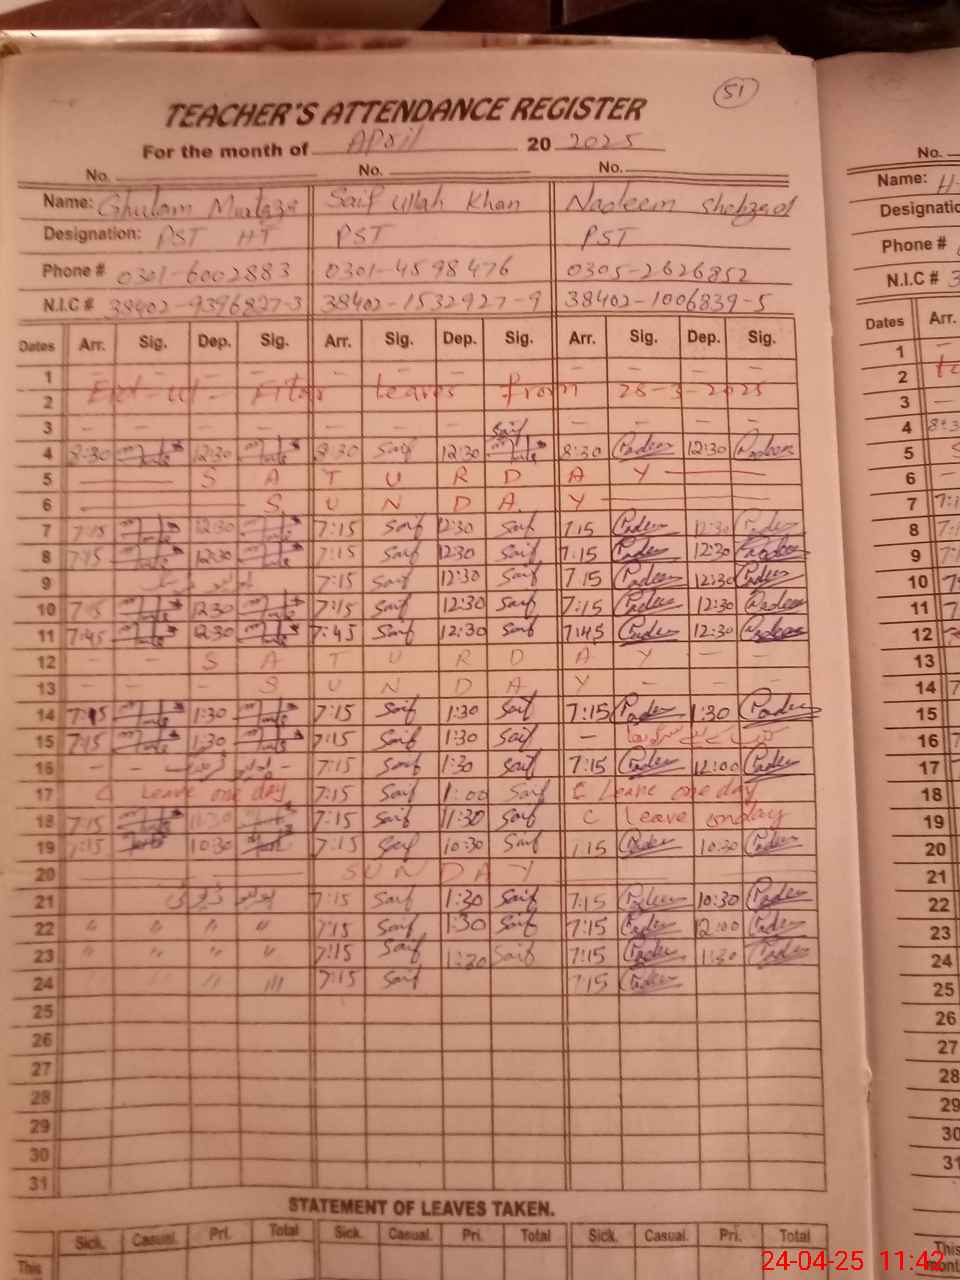 51
TEACHER'S ATTENDANCE REGISTER
For the month of April 20 2025
No. No. No.
Name: Ghulam Murtaza Saif ullah Khan Nadeem Shehzad
Designation: PST HT PST PST
Phone # 0301-6002883 0301-4598476 0305-2626852
N.I.C # 38402-9396827-3 38402-1532927-9 38402-1006839-5
Dates Arr. Sig. Dep. Sig. Arr. Sig. Dep. Sig. Arr. Sig. Dep. Sig.
1 – – – – – – – – – –
2 Eid-ul-Fitar Leaves from 28-3-2025
3 – – – – – – – – –
Saif
4 8:30 12:30 8:30 Saif 12:30 8:30 Nadeem 12:30 Nadeem
5 S A T U R D A Y
6 S U N D A Y
7 7:15 12:30 7:15 Saif 12:30 Saif 7:15 Nadeem 12:30 Nadeem
8 7:15 12:30 7:15 Saif 12:30 Saif 7:15 Nadeem 12:30 Nadeem
9 7:15 Saif 12:30 Saif 7:15 Nadeem 12:30 Nadeem
10 7:15 12:30 7:15 Saif 12:30 Saif 7:15 Nadeem 12:30 Nadeem
11 7:45 12:30 7:45 Saif 12:30 Saif 7:45 Nadeem 12:30 Nadeem
12 – – S A T U R D A Y – –
13 – – – S U N D A Y – – –
14 7:15 1:30 7:15 Saif 1:30 Saif 7:15 Nadeem 1:30 Nadeem
15 7:15 1:30 7:15 Saif 1:30 Saif –
16 – – 7:15 Saif 1:30 Saif 7:15 Nadeem 12:00 Nadeem
17 C Leave one day 7:15 Saif 1:00 Saif C Leave one day
18 7:15 11:30 7:15 Saif 11:30 Saif C leave onday
19 7:15 10:30 7:15 Saif 10:30 Saif 7:15 Nadeem 10:30 Nadeem
20 S U N D A Y
21 7:15 Saif 1:30 Saif 7:15 Nadeem 10:30 Nadeem
22 〃 〃 〃 〃 7:15 Saif 1:30 Saif 7:15 Nadeem 12:00 Nadeem
23 〃 〃 〃 〃 7:15 Saif 1:30 Saif 7:15 Nadeem 1:30 Nadeem
24 7:15 Saif 7:15 Nadeem
25
26
27
28
29
30
31
STATEMENT OF LEAVES TAKEN.
Sick. Casual. Pri. Total Sick. Casual. Pri. Total Sick. Casual. Pri. Total
This
No.
Name: H
Designatio
Phone #
N.I.C # 3
Dates Arr.
1
2
3
4 8:3
5
6
7 7:1
8
9
10
11
12
13
14
15
16
17
18
19
20
21
22
23
24
25
26
27
28
29
30
31
This
mont
24-04-25 11:42